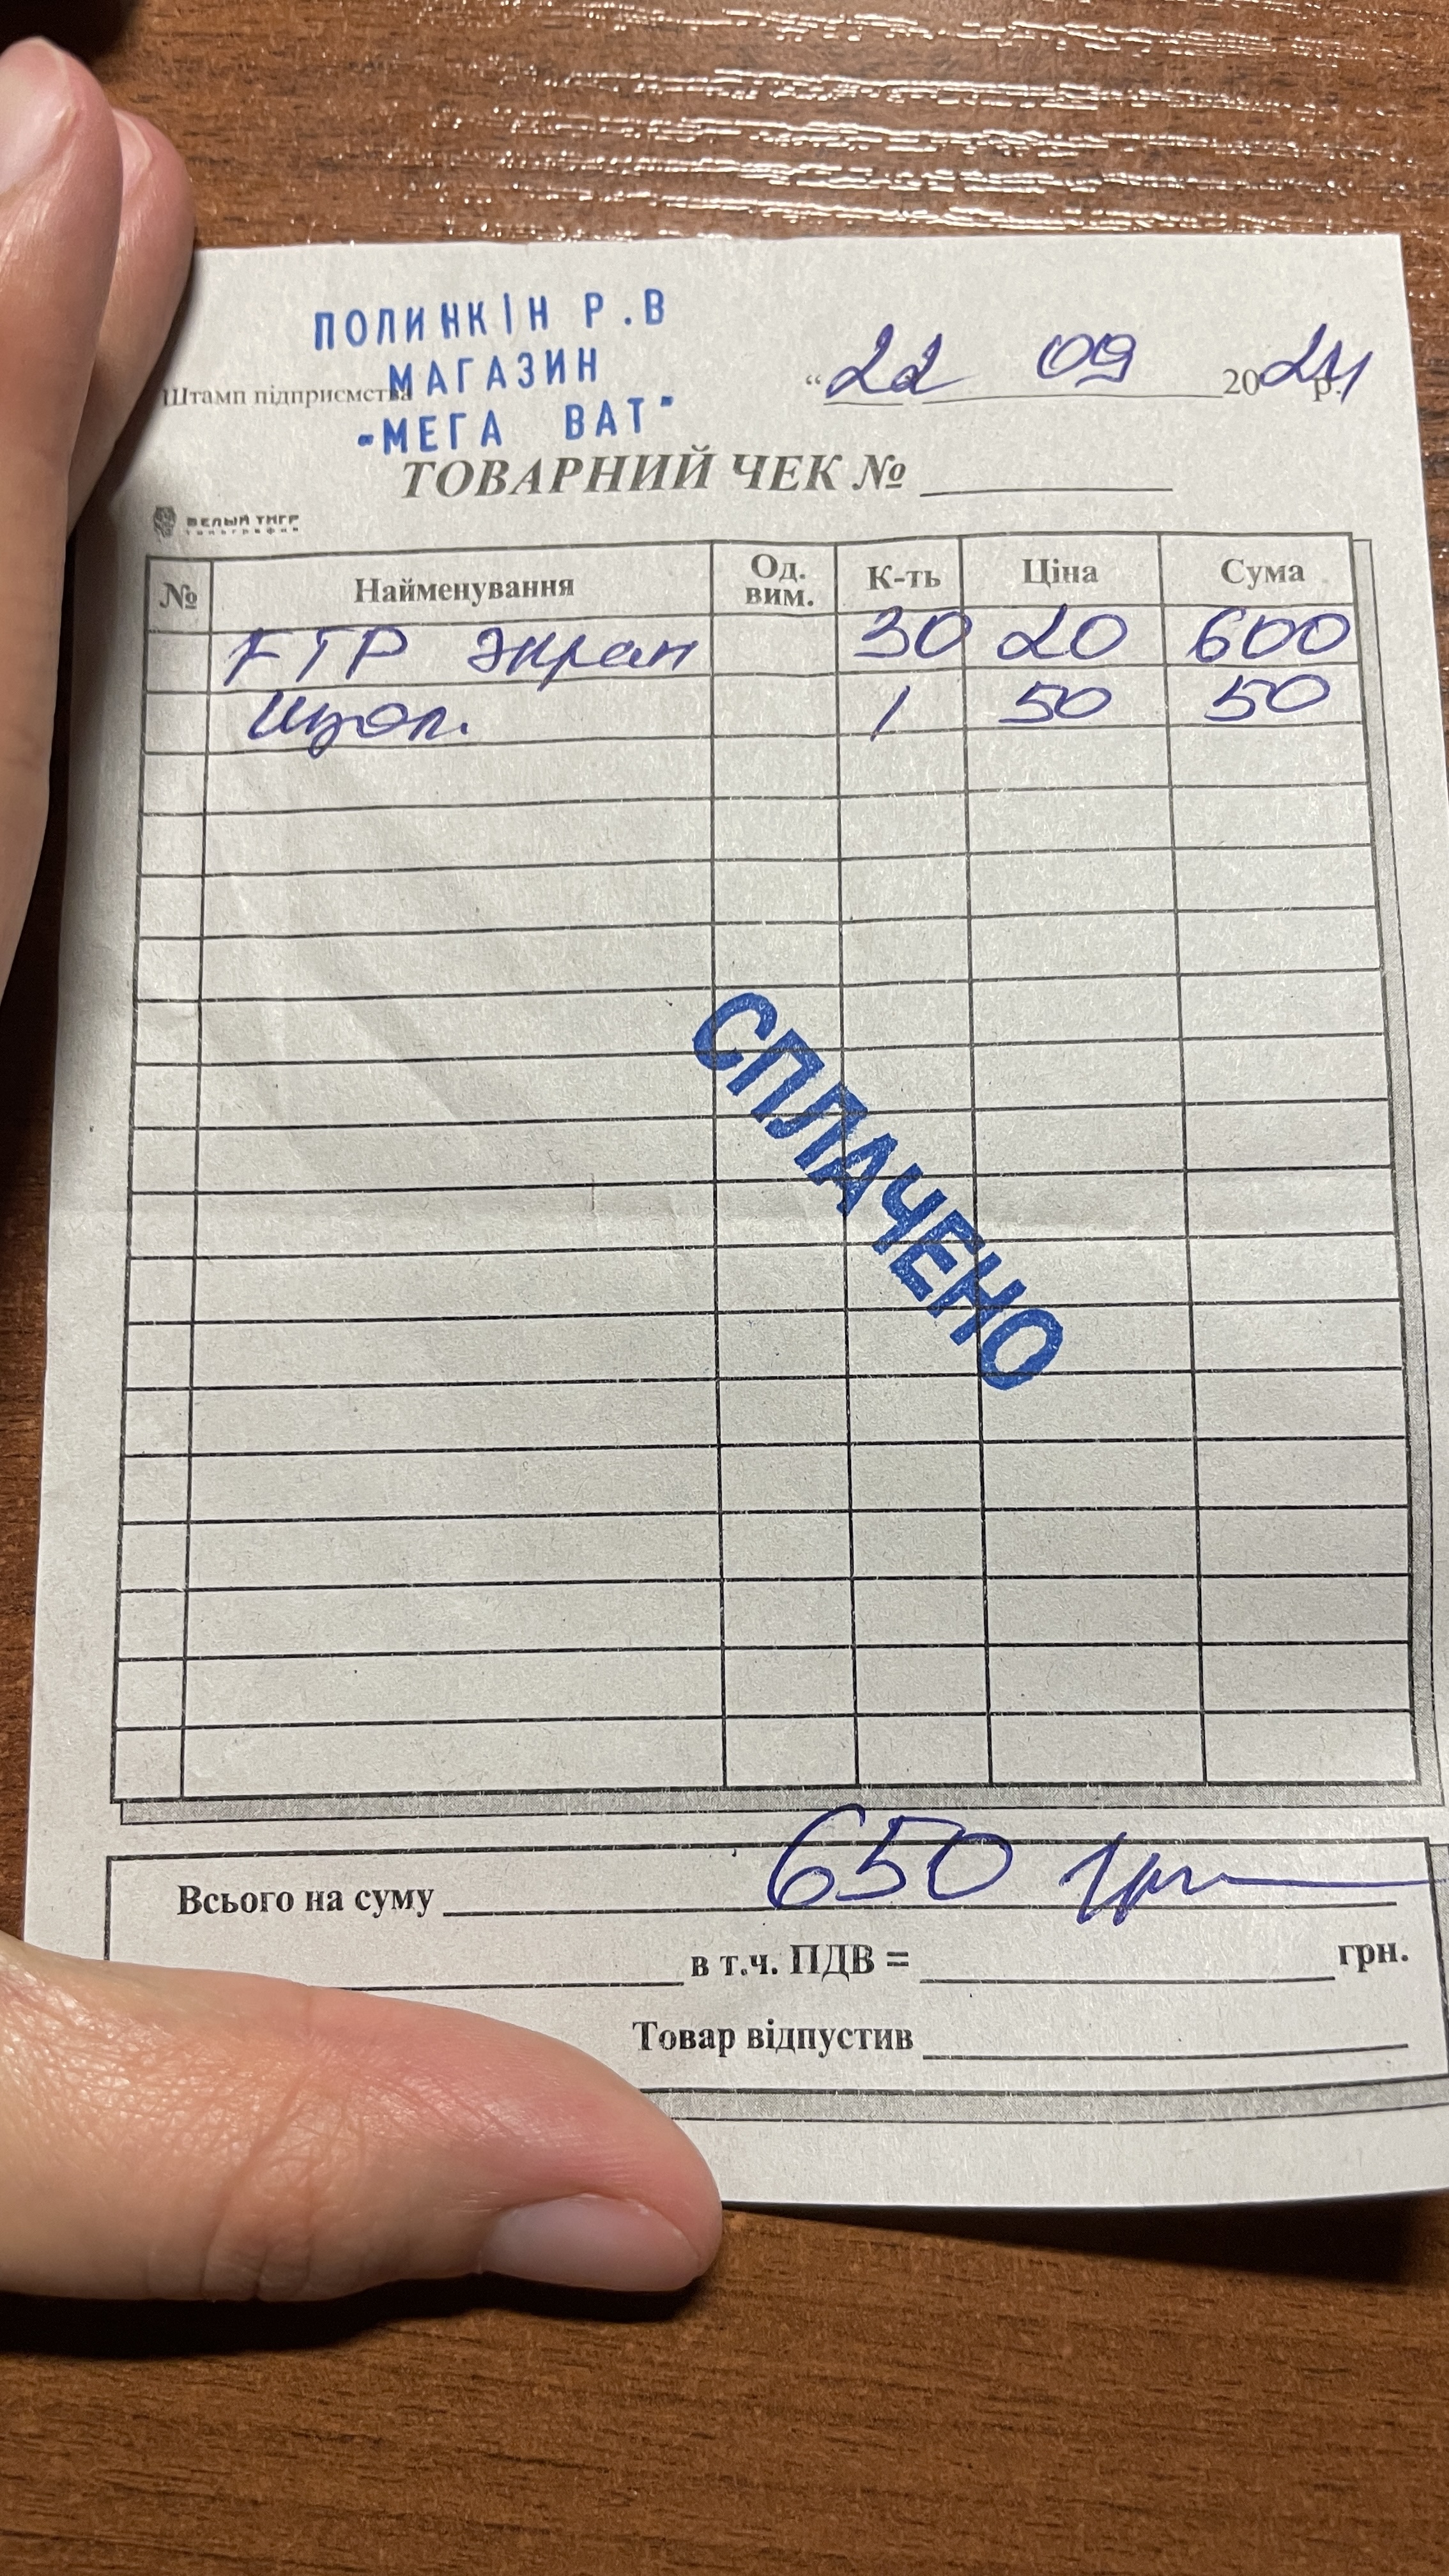 ПОЛИНКІН Р.В
МАГАЗИН
"МЕГА ВАТ"
Штамп підприємства
“22 09 2024 р.
ТОВАРНИЙ ЧЕК №
БЕЛЫЙ ТИГР
типография
№ Найменування Од. вим. К-ть Ціна Сума
FTP экран 30 20 600
Изол. 1 50 50
СПЛАЧЕНО
Всього на суму 650 грн
в т.ч. ПДВ = грн.
Товар відпустив